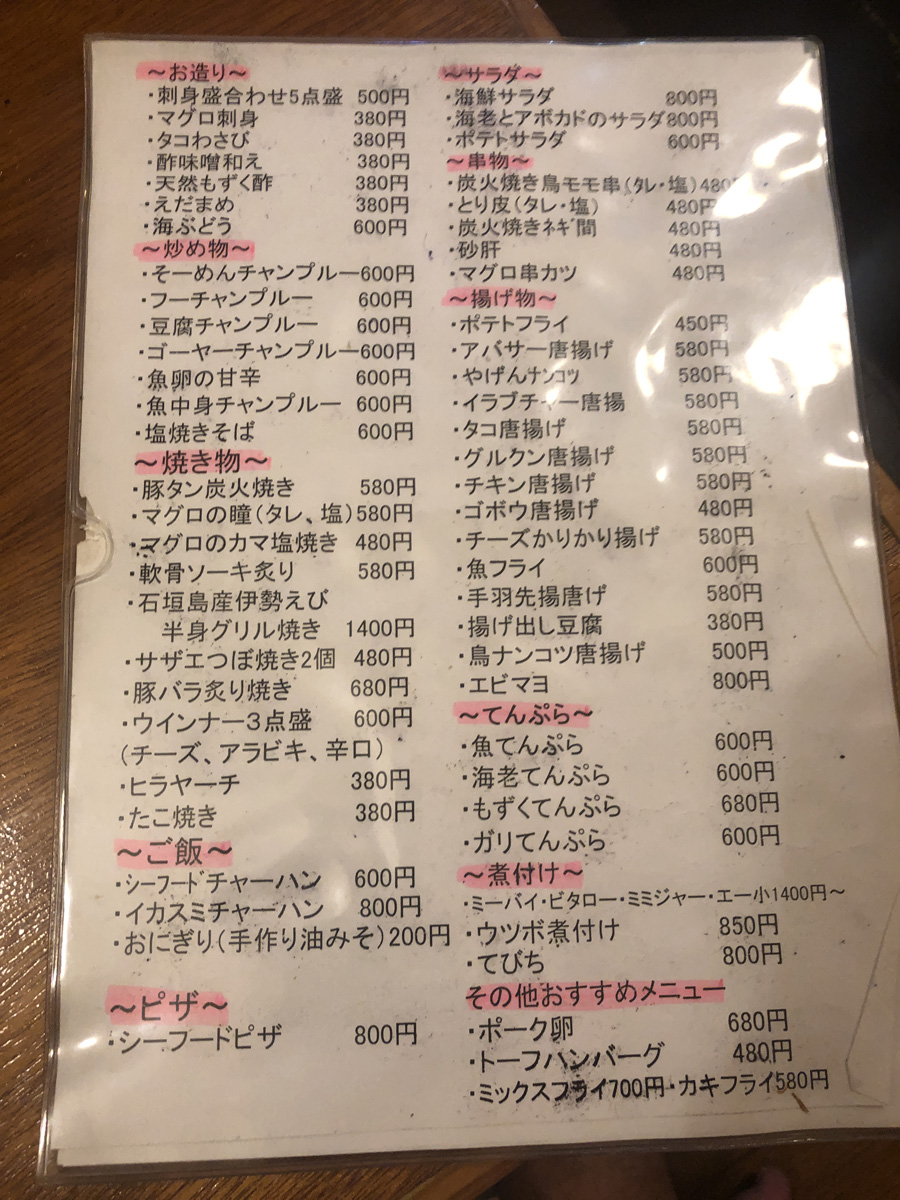 ～お造り～
・刺身盛合わせ5点盛 500円
・マグロ刺身 380円
・タコわさび 380円
・酢味噌和え 380円
・天然もずく酢 380円
・えだまめ 380円
・海ぶどう 600円
～炒め物～
・そーめんチャンプルー600円
・フーチャンプルー 600円
・豆腐チャンプルー 600円
・ゴーヤーチャンプルー600円
・魚卵の甘辛 600円
・魚中身チャンプルー 600円
・塩焼きそば 600円
～焼き物～
・豚タン炭火焼き 580円
・マグロの瞳(タレ、塩)580円
・マグロのカマ塩焼き 480円
・軟骨ソーキ炙り 580円
・石垣島産伊勢えび
半身グリル焼き 1400円
・サザエつぼ焼き2個 480円
・豚バラ炙り焼き 680円
・ウインナー３点盛 600円
(チーズ、アラビキ、辛口)
・ヒラヤーチ 380円
・たこ焼き 380円
～ご飯～
・シーフードチャーハン 600円
・イカスミチャーハン 800円
・おにぎり(手作り油みそ)200円
～ピザ～
・シーフードピザ 800円
～サラダ～
・海鮮サラダ 800円
・海老とアボカドのサラダ800円
・ポテトサラダ 600円
～串物～
・炭火焼き鳥モモ串(タレ・塩)480円
・とり皮(タレ・塩) 480円
・炭火焼きネギ間 480円
・砂肝 480円
・マグロ串カツ 480円
～揚げ物～
・ポテトフライ 450円
・アバサー唐揚げ 580円
・やげんナンコツ 580円
・イラブチャー唐揚 580円
・タコ唐揚げ 580円
・グルクン唐揚げ 580円
・チキン唐揚げ 580円
・ゴボウ唐揚げ 480円
・チーズかりかり揚げ 580円
・魚フライ 600円
・手羽先揚唐げ 580円
・揚げ出し豆腐 380円
・鳥ナンコツ唐揚げ 500円
・エビマヨ 800円
～てんぷら～
・魚てんぷら 600円
・海老てんぷら 600円
・もずくてんぷら 680円
・ガリてんぷら 600円
～煮付け～
・ミーバイ・ビタロー・ミミジャー・エー小1400円～
・ウツボ煮付け 850円
・てびち 800円
その他おすすめメニュー
・ポーク卵 680円
・トーフハンバーグ 480円
・ミックスフライ700円・カキフライ580円